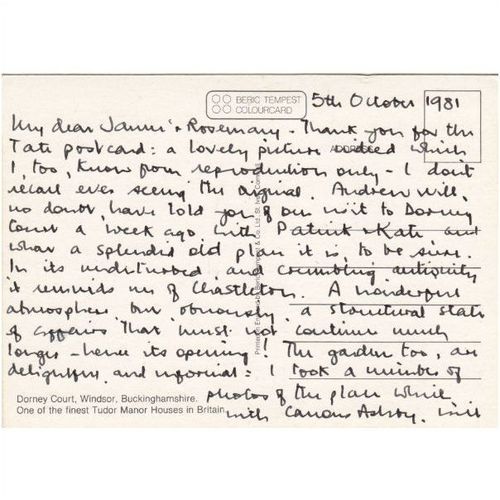 BERIC TEMPEST
COLOURCARD
5th October 1981
My dear Jannis & Rosemary - Thank you for the
Tate postcard: a lovely picture indeed which
I, too, know from reproduction only - I don't
recall ever seeing the original. Andrew will,
no doubt, have told you of our visit to Dorney
Court a week ago with Patrick & Kate and
what a splendid old place it is, to be sure.
In its undisturbed and crumbling antiquity
it reminds me of Chastleton. A wonderful
atmosphere but, obviously, a structural state
of affairs that must not continue much
longer - hence its opening! The garden too, are
delightful and informal: I took a number of
photos of the place which
with Canons Ashby, will
Dorney Court, Windsor, Buckinghamshire.
One of the finest Tudor Manor Houses in Britain
ADDRESS